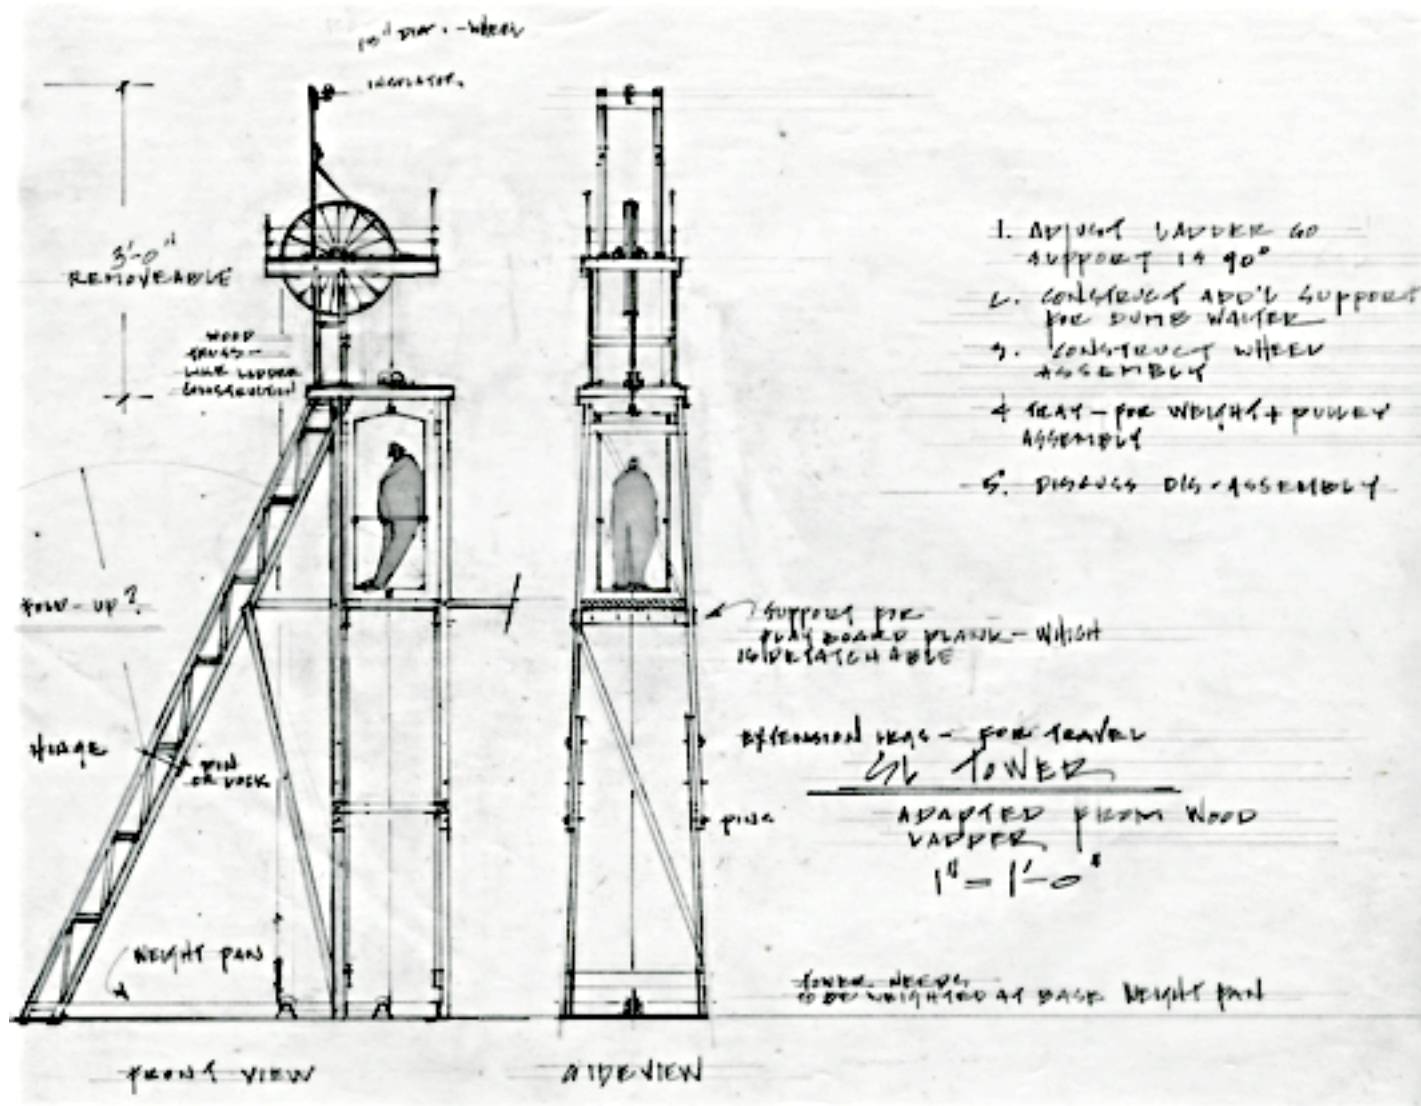 DIA. - WHEEL
INSULATOR
3'-0"
REMOVEABLE
WOOD
TRUSS -
LIKE LADDER
CONSTRUCTION
FOLD-UP?
HINGE
PIN
OR LOCK
WEIGHT PAN
FRONT VIEW
SIDEVIEW
1. ADJUST LADDER SO
SUPPORT IS 90°
2. CONSTRUCT ADD'L SUPPORT
FOR DUMB WAITER
3. CONSTRUCT WHEEL
ASSEMBLY
4 TRAY - FOR WEIGHT + PULLEY
ASSEMBLY
5. DISCUSS DIS-ASSEMBLY
SUPPORT FOR
PLAYBOARD PLANK - WHICH
IS DETATCHABLE
EXTENSION LEGS - FOR TRAVEL
TOWER
PINS
ADAPTED FROM WOOD
LADDER
1" = 1'-0"
TOWER NEEDS
TO BE WEIGHTED AT BASE WEIGHT PAN